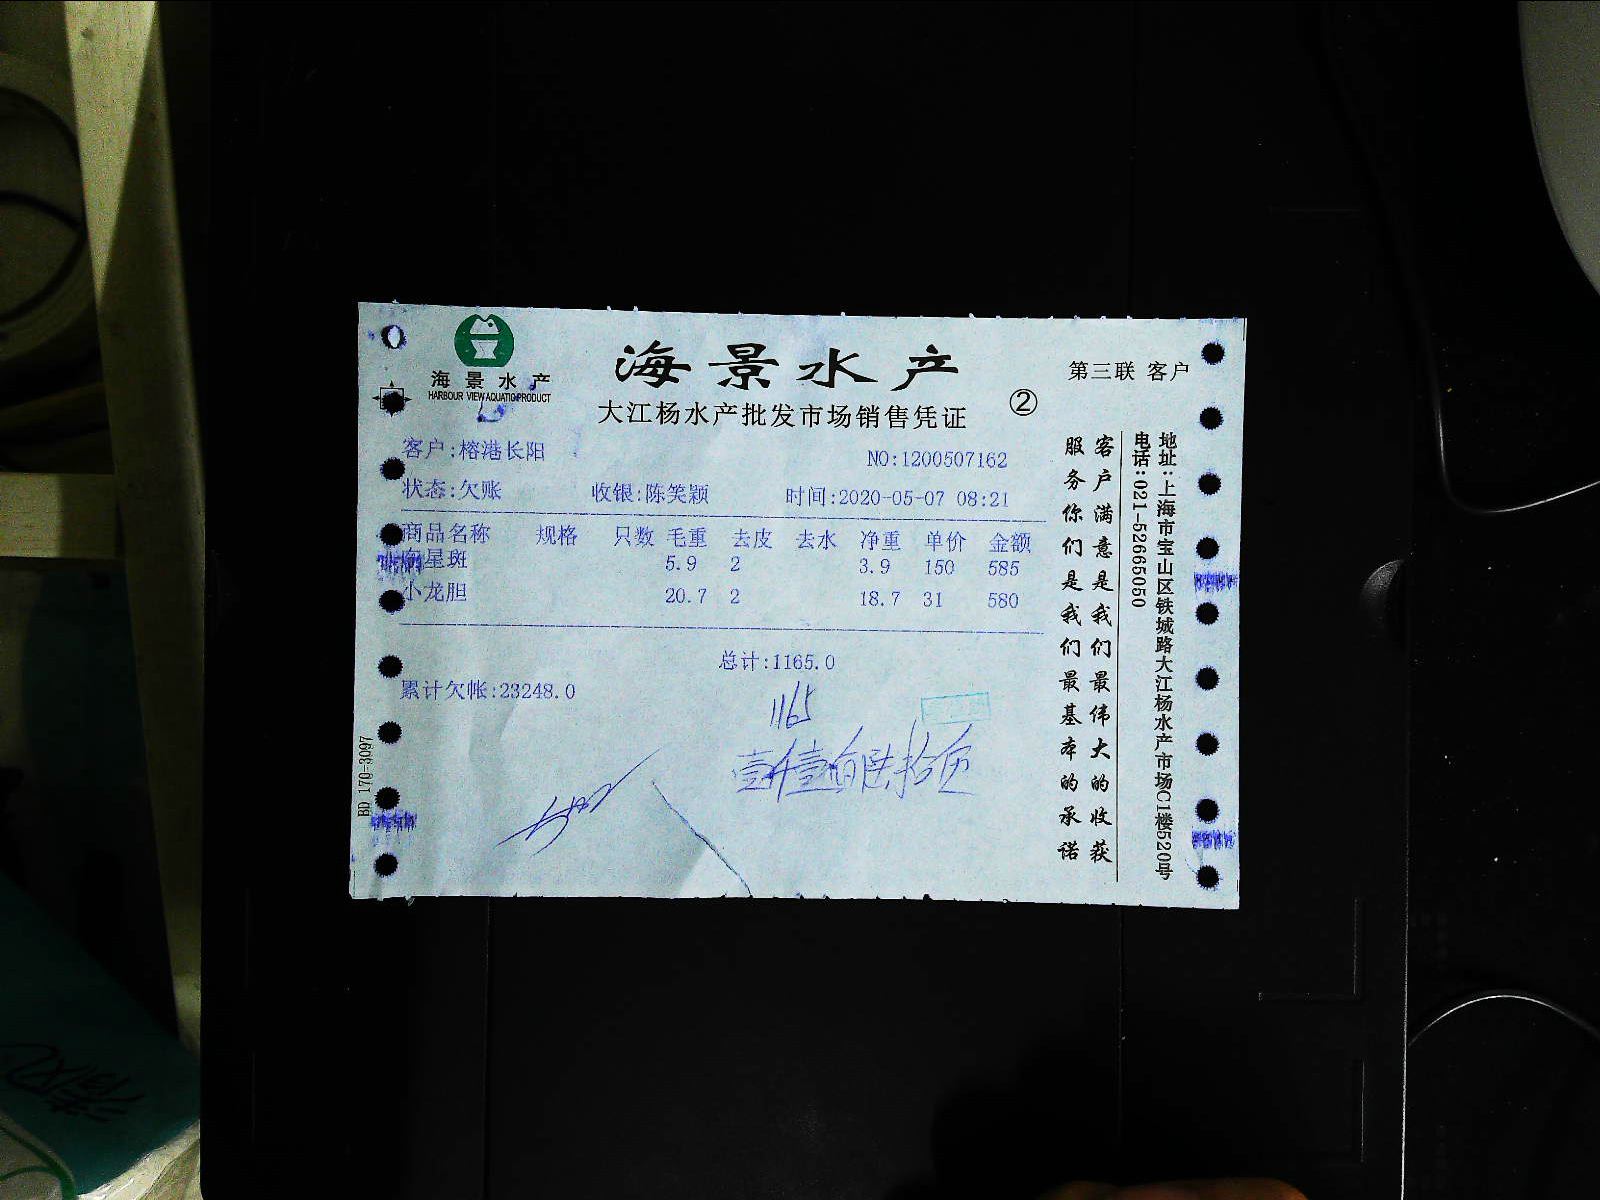 海景水产
HARBOUR VIEW AQUATIC PRODUCT
海景水产
大江杨水产批发市场销售凭证
②
第三联 客户
客户:榕港长阳
NO:1200507162
状态:欠账 收银:陈笑颖 时间:2020-05-07 08:21
商品名称 规格 只数 毛重 去皮 去水 净重 单价 金额
星斑 5.9 2 3.9 150 585
小龙胆 20.7 2 18.7 31 580
总计:1165.0
累计欠帐:23248.0
1165
壹仟壹佰陆拾伍
BD 170-3097
客户满意是我们最伟大的收获
服务你们是我们最基本的承诺
地址:上海市宝山区铁城路大江杨水产市场C1楼520号
电话:021-52665050